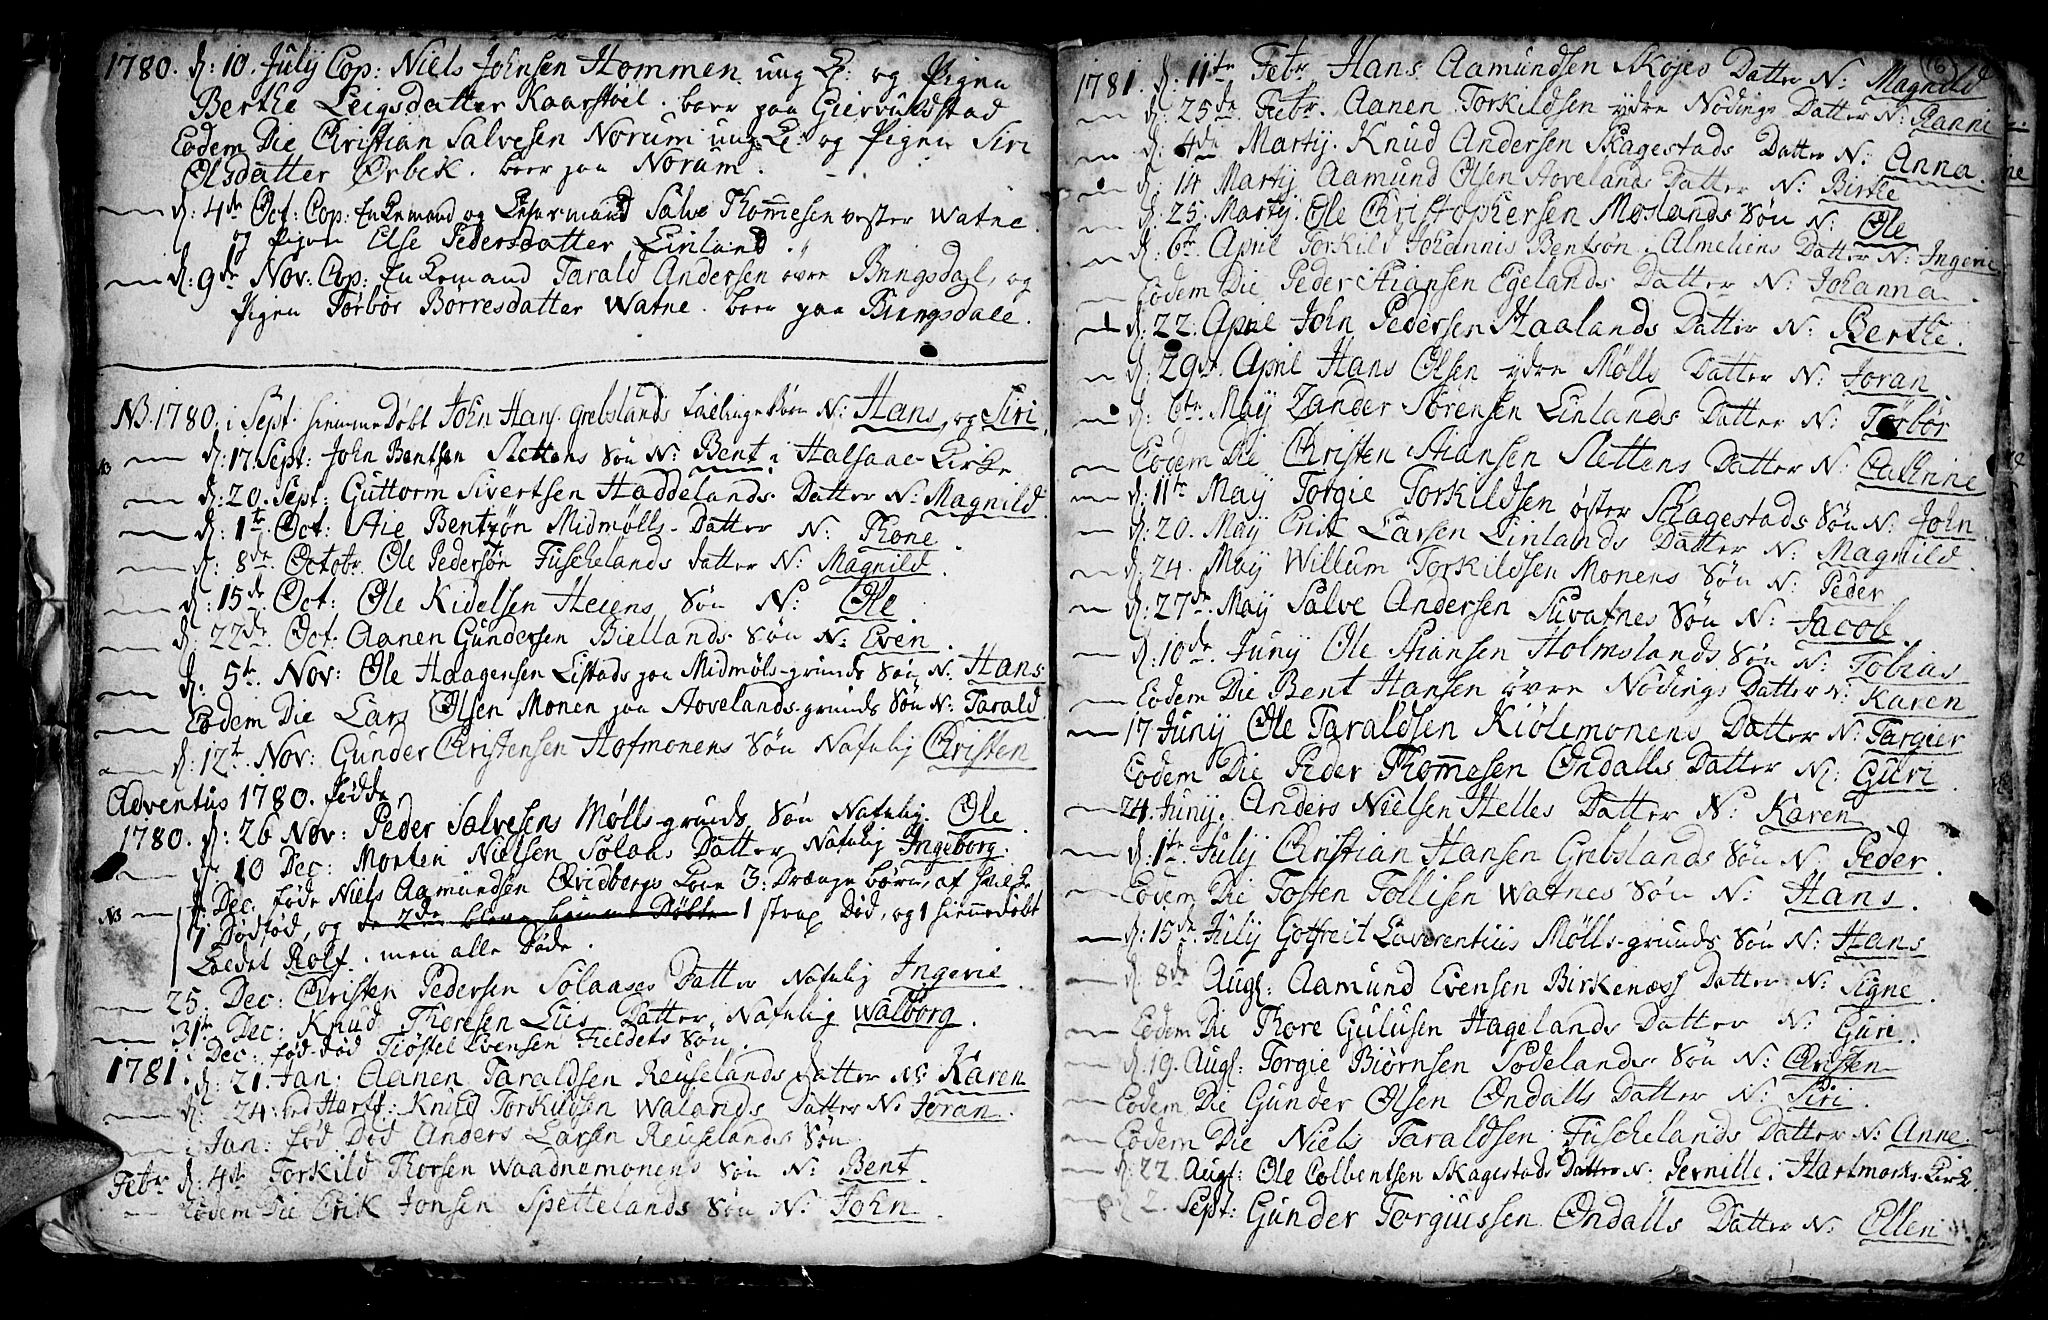 1780. d: 10. July Cop: Niels Johnsen Hommen ung K: og Pigen
Berthe Leigsdatter Kaarstöel. boer paa Giervuldstad
Eodem Die Christian Salvesen Norum ung K: og Pigen Siri
Olsdatter Örbek. boer paa Norum.
d: 4de Oct: Cop: Enkemand og Salve Thommesen vester Watne
og Pigen Else Pedersdatter Linland.
d: 9de Nov: Cop: Enkemand Tarald Andersen övre Bringsdahl, og
Pigen Torbor Borresdatter Watne. boer paa Bringsdale.
NB. 1780. i Sept: hiemmedöbt John Hans: Grebslands Tvillinge Börn N: Hans, og Siri.
NB d: 17. Sept: John Bentsen Slettens Sön N: Bent i Halsaae-Kirke
d: 20. Sept: Guttorm Sivertsen Haddelands Datter N: Magnild.
d: 1te Oct: Aie Bentzön Midmölls Datter N: Thone.
d: 8de Octobr Ole Pedersön Fuschelands datter N: Magnild.
d: 15de Oct: Ole Kidelsen Heiens Sön N: Ole
d: 22de Oct: Aanen Gundersen Biellands Sön N: Even.
d: 5te Nov: Ole Haagensen Listads paa Midmöls-grunds Sön N: Hans
Eodem Die Lars Olsen Monen paa Hovelands-grunds Sön N: Tarald.
d: 12te Nov: Gunder Christensen Hofmonens Sön Nafnlig Christen
Adventus 1780. födde
1780. d: 26 Nov: Peder Salvesens Mölls-grunds Sön Nafnlig. Ole.
d: 10 Dec: Morten Nielsen Solaas Datter Nafnlig Ingeborg.
NB d: Dec: föde Niels Aamundsen Qvidbergs Kone 3: Drænge börn, af hvilke
1 Dödföd, og 1 strax Död, og 1 hiemmedöbt
Kaldet Rolf. men alle Döde.
25. Dec: Christen Pedersen Solaases Datter Nafnlig Ingerie.
31te Dec: Knud Thoresen Lies Datter Nafnlig Walborg.
i Dec: föd död Tiöstel Evensen Fieldets Sön.
1781. d: 21. Jan: Aanen Taraldsen Reuselands Datter N: Karen
d: 24: ved Hartf: Knud Torkildsen Walands Datter N: Joran.
i Jan: föd Död Anders Larsen Reuselands Sön
Febr d: 4de Torkild Thorsen Waadnemonens Sön N: Bent.
Eodem Die Erik Jonsen Spettelands Sön N: John.
16
1781. d: 11te Febr Hans Aamundsen Skojes Datter N: Magnild
d: 25de Febr. Aanen Torkildsen ydre Nödings Datter N: Ranni
d: 4de Martij. Knud Andersen Skagestads Datter N: Anna.
d: 14 Martij Aamund Olsen Hovelands Datter N: Birthe
d: 25. Martij. Ole Christophersen Moslands Sön N: Ole
d: 6te April Torkild Johannis Bentsön i Almeliens Datter N: Ingerie
Eodem Die Peder Stiansen Egelands Datter N: Johanna.
d: 22. April John Pedersen Haalands Datter N: Berthe.
d: 29de April Hans Olsen ydre Mölls Datter N: Joran
d: 6te May Zander Sörensen Linlands Datter N: Torbör
Eodem Die Christen Stiansen Slettens Datter N: Cathrine
d: 11te May Torgie Torkildsen öster Skagestads Sön N: John.
d: 20. May Erik Larsen Linlands Datter N: Magnild.
d: 24. May Willum Torkildsen Monens Sön N: Peder
d: 27de May Salve Andersen Suvatnes Sön N: Jacob.
d: 10de Juny Ole Stiansen Holmslands Sön N: Tobias
Eodem Die Bent Hansen övre Nödings Datter N: Karen
17 Juny Ole Taraldsen Kiölemonens Datter N: Targier
Eodem Die Peder Thommesen Öndalls Datter N: Guri
24. Juny. Anders Nielsen Helles Datter N: Karen
d: 1te July Christian Hansen Grebslands Sön N: Peder.
Eodem Die Tosten Tollisen Watnes Sön N: Hans.
d: 15de July Gotfreit Laverentius Mölls-grunds Sön N: Hans
d: 8de Aug: Aamund Evensen Birkenæss Datter N: Signe.
Eodem Die Thore Gulusen Hagelands Datter N: Guri.
d: 19. Aug: Torgie Biörnsen Sodelands Sön N: Christen
Eodem Die Gunder Olsen Öndalls Datter N: Siri.
Eodem Die Niels Taraldsen Fuschelands Datter N: Anne.
d: 22. Aug: Ole Colbentsen Skagestads Datter N: Pernille i Hartmarks-Kirk.
d: 2. Sept: Gunder Torgiussen Öndalls Datter N: Ellen